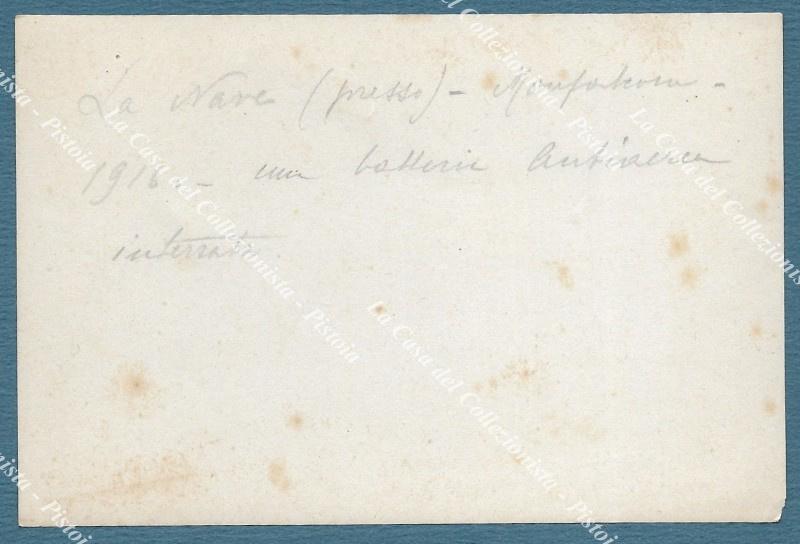 La Nave (presso) - Monfalcone -
1916 - una batteria Antiaerea
interrata.
La Casa del Collezionista - Pistoia
La Casa del Collezionista - Pistoia
La Casa del Collezionista - Pistoia
La Casa del Collezionista
La Casa del Collezionista - Pistoia